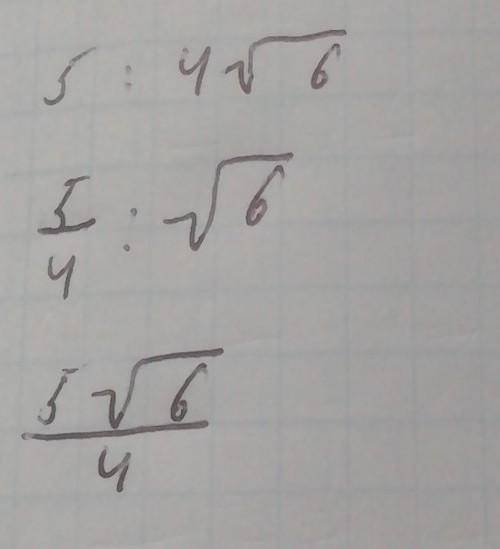 5 : 4√6
5/4 : √6
5√6/4